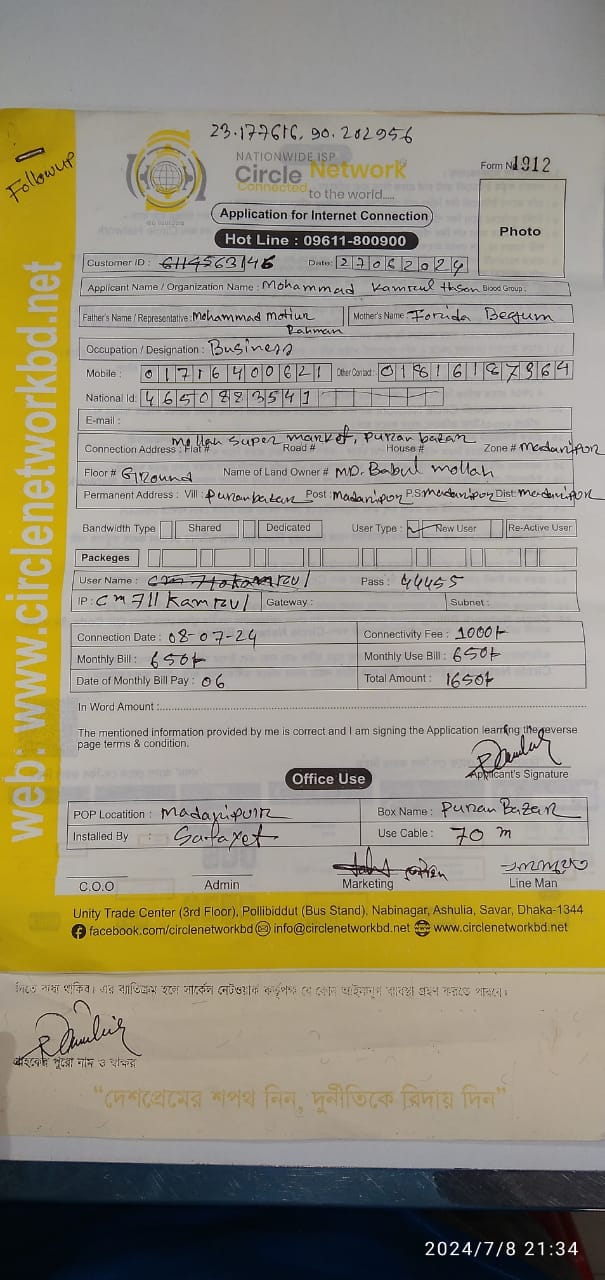 23.177616, 90.202956
Followup
NATIONWIDE ISP
Circle Network
Connected to the world.....
ISO 9001:2015
Form No 1912
Application for Internet Connection
Hot Line : 09611-800900
Photo
Customer ID : 6114563146 Date: 27062024
Applicant Name / Organization Name : Mohammad Kamrul Hsan Blood Group :
Father's Name / Representative : Mohammad Motiur Rahman Mother's Name Forida Begum
Occupation / Designation : Business
Mobile : 01716400621 Other Contact : 01816187964
National Id: 4650823541
E-mail :
Connection Address : Flat # Mollah Super market, Puran bazar Road # House # Zone # Madaripor
Floor # Ground Name of Land Owner # MD. Babul mollah
Permanent Address : Vill : Puranbazar Post : Madaripor P.S Madaripor Dist: Madaripor
Bandwidth Type Shared Dedicated User Type : New User Re-Active User
Packeges
User Name : Pass : 44455
IP : cm711kamrul Gateway : Subnet :
Connection Date : 08-07-24 Connectivity Fee : 1000/-
Monthly Bill : 650/- Monthly Use Bill : 650/-
Date of Monthly Bill Pay : 06 Total Amount : 1650/-
In Word Amount :
The mentioned information provided by me is correct and I am signing the Application learning the reverse
page terms & condition.
Applicant's Signature
Office Use
POP Locatition : Madaripur Box Name : Puran Bazar
Installed By : Safayet Use Cable : 70 m
C.O.O Admin Marketing Line Man
Unity Trade Center (3rd Floor), Pollibiddut (Bus Stand), Nabinagar, Ashulia, Savar, Dhaka-1344
facebook.com/circlenetworkbd info@circlenetworkbd.net www.circlenetworkbd.net
web: www.circlenetworkbd.net
দিতে বাধ্য থাকিব। এর ব্যতিক্রম হলে সার্কেল নেটওয়ার্ক কর্তৃপক্ষ যে কোন আইনানুগ ব্যবস্থা গ্রহণ করতে পারবে।
গ্রাহকের পুরো নাম ও স্বাক্ষর
“দেশপ্রেমের শপথ নিন, দুর্নীতিকে বিদায় দিন”
2024/7/8 21:34